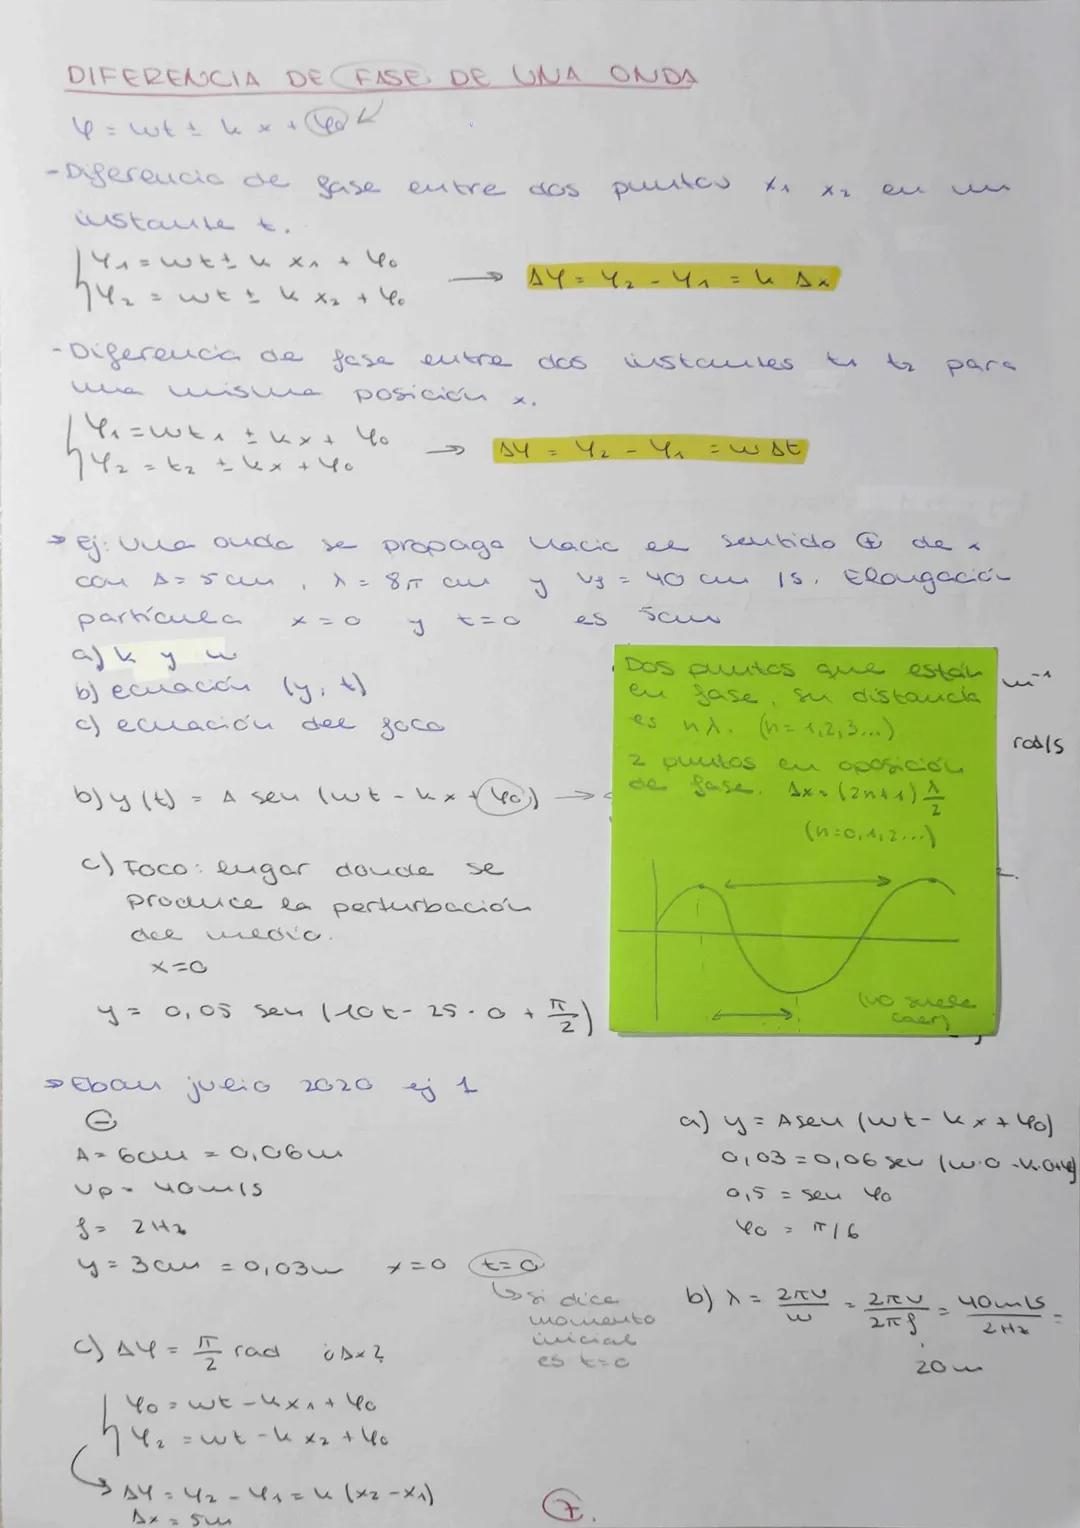 DIFERENCIA DE FASE DE UNA ONDA
φ = ωt ± k x + φ₀
- Diferencia de fase entre dos puntos x₁ x₂ en un
instante t.
φ₁ = ωt ± k x₁ + φ₀
φ₂ = ωt ± k x₂ + φ₀
→ Δφ = φ₂ - φ₁ = k Δx
- Diferencia de fase entre dos instantes t₁ t₂ para
una misma posición x.
φ₁ = ωt₁ ± kx + φ₀
φ₂ = t₂ ± kx + φ₀
→ Δφ = φ₂ - φ₁ = ω Δt
→ Ej: Una onda se propaga hacia el sentido ⊕ de x
con A = 5 cm, λ = 8π cm y vf = 40 cm/s. Elongación
partícula x = 0 y t = 0 es 5cm
a) k y ω
b) ecuación (y, t)
c) ecuación del foco
m⁻¹
rad/s
Dos puntos que están
en fase, su distancia
es nλ. (n = 1,2,3...)
2 puntos en oposición
de fase. Δx = (2n+1) λ/2
(n = 0,1,2...)
(no suele
caer)
b) y(t) = A sen (ωt - kx + φ₀) →
c) Foco: lugar donde se
produce la perturbación
del medio.
x = 0
y = 0,05 sen (10t - 25 · 0 + π/2)
→ Ebau julio 2020 ej 1
⊖
A = 6cm = 0,06m
vp = 40m/s
f = 2Hz
y = 3cm = 0,03m x = 0 t = 0
↳ si dice
momento
inicial
es t = 0
a) y = A sen (ωt - kx + φ₀)
0,03 = 0,06 sen (ω·0 - k·0 + φ₀)
0,5 = sen φ₀
φ₀ = π/6
b) λ = 2πv/ω = 2πv/2πf = 40m/s/2Hz =
20m
c) Δφ = π/2 rad ¿Δx?
φ₀ = ωt - kx₁ + φ₀
φ₂ = ωt - k x₂ + φ₀
→ Δφ = φ₂ - φ₁ = k (x₂ - x₁)
Δx = 5m
7.